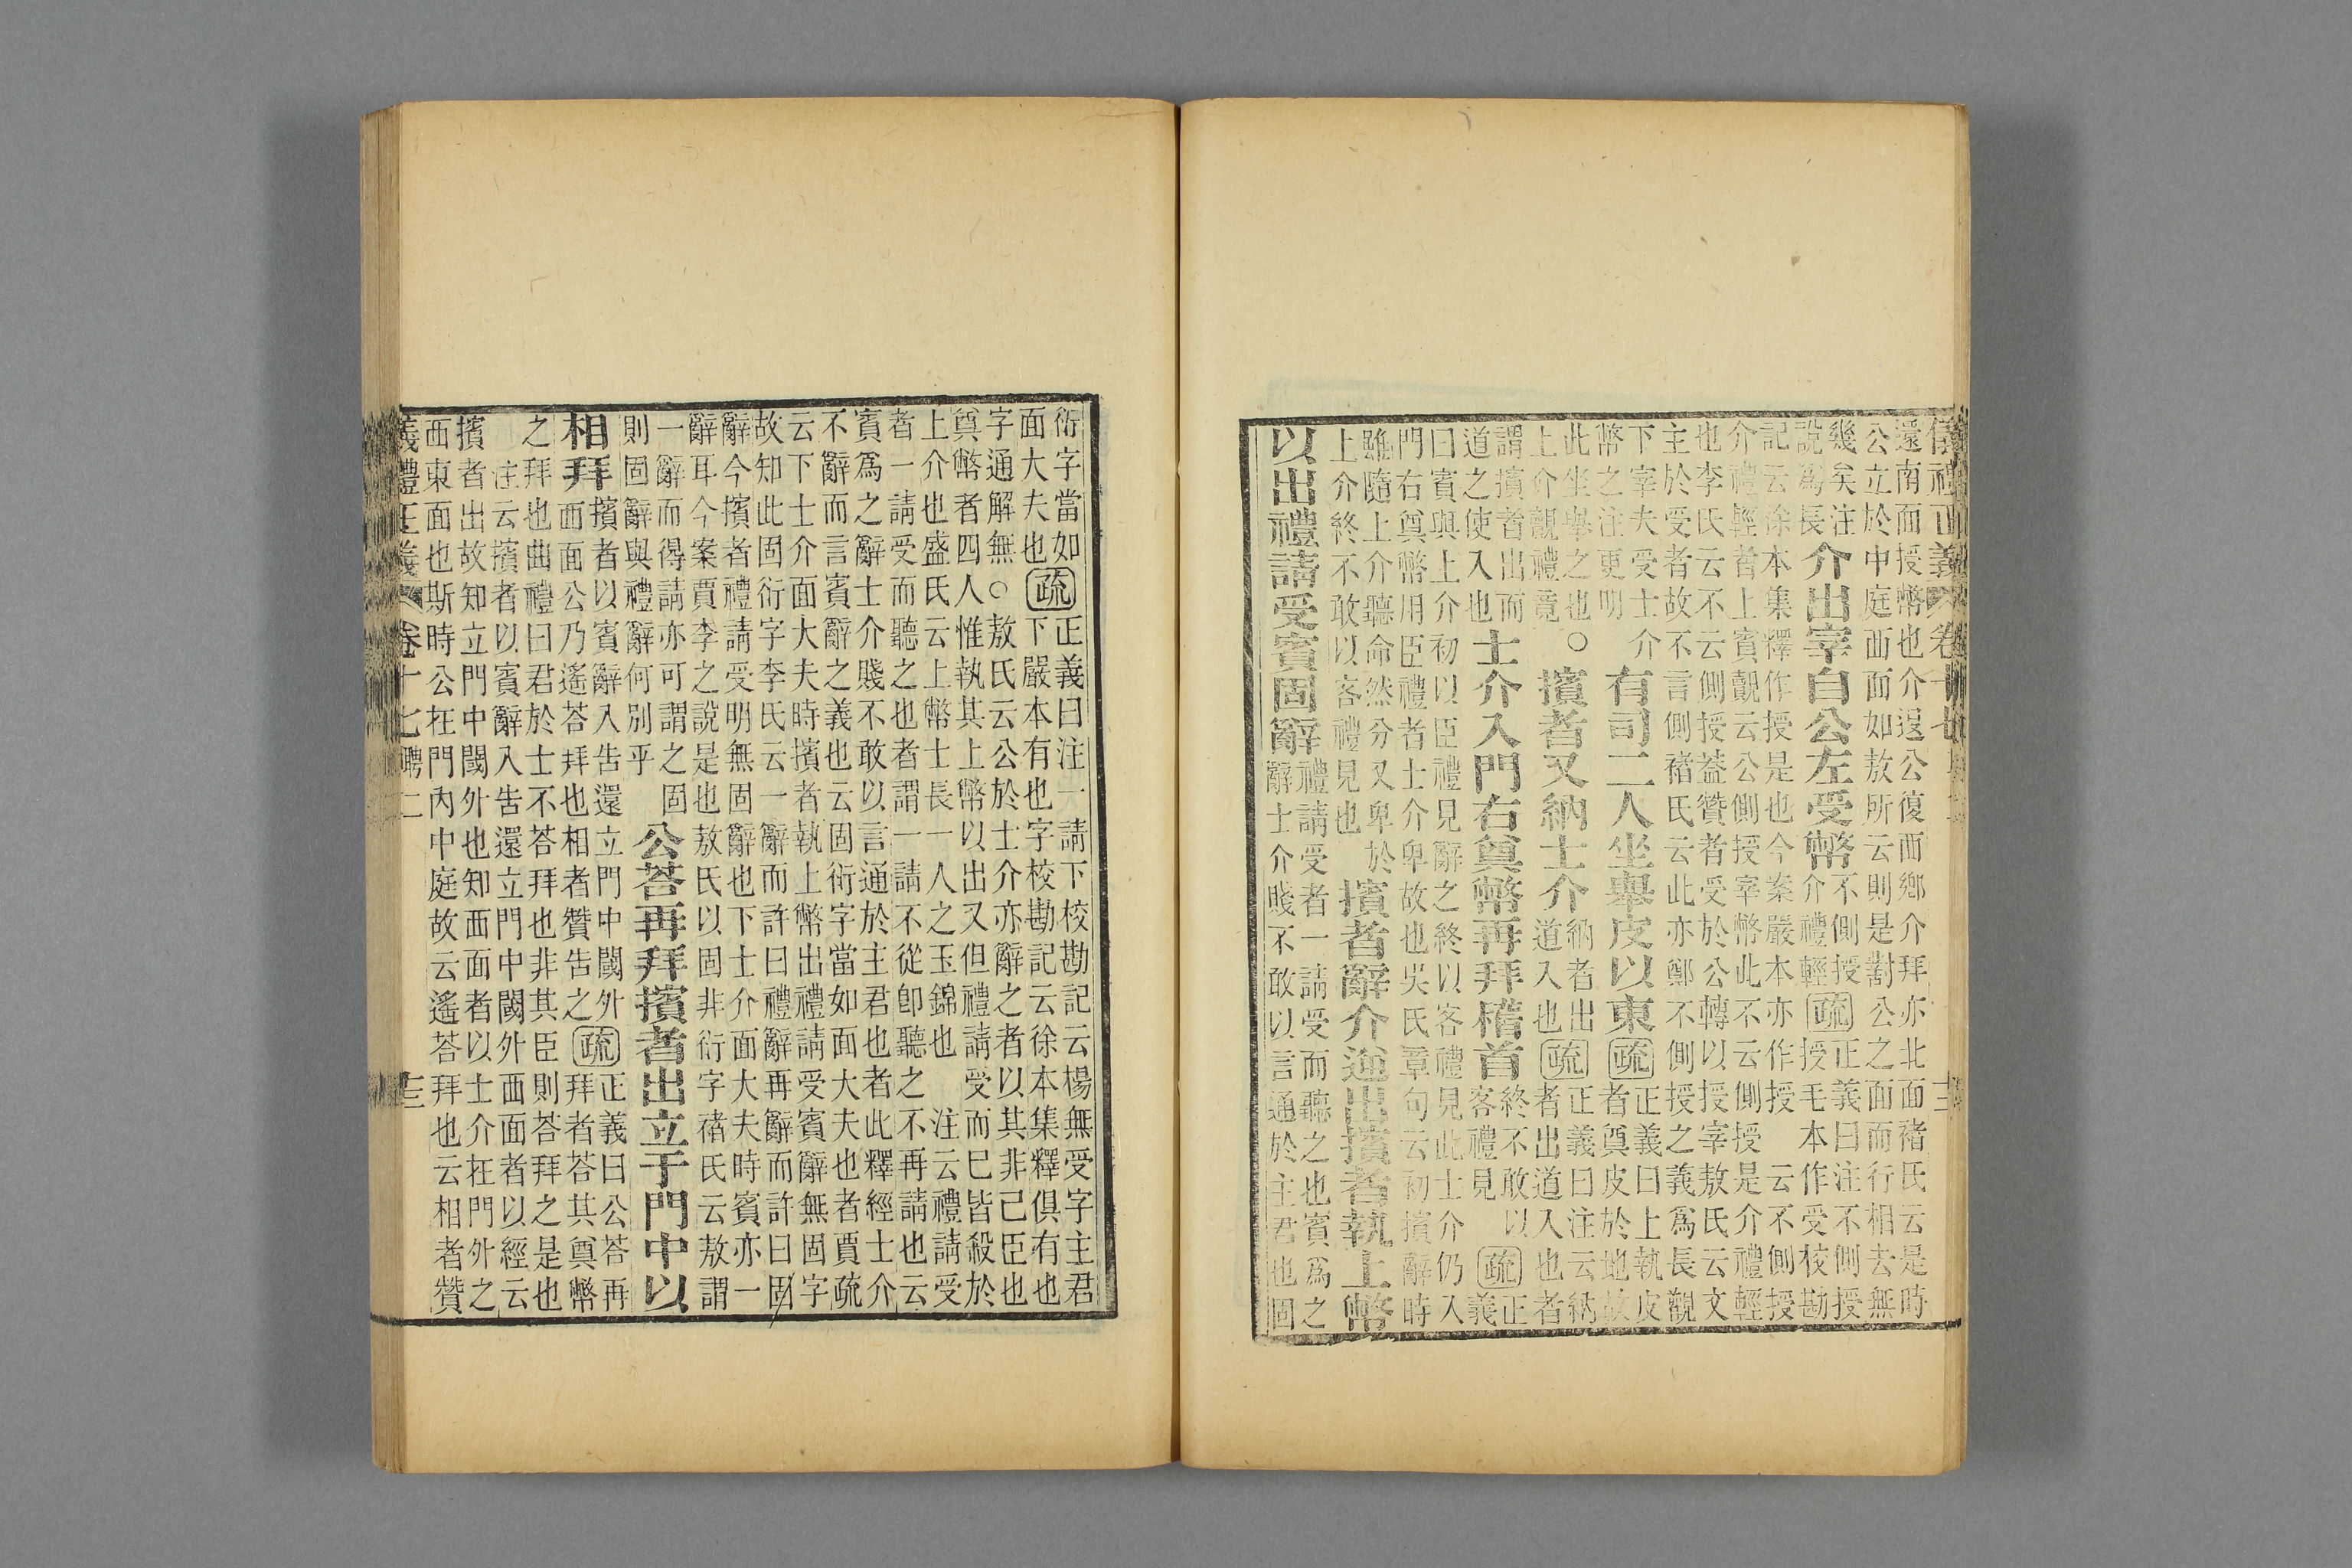 儀禮正義 卷十七
還南面授幣也介退公復西鄉介拜亦北面褚氏云是時
公立於中庭西面如敖所云則是對公之面而行相去無
幾矣注
說爲長
介出宰自公左受幣
不側授
介禮輕
疏
正義曰注不側授
授毛本作受校勘
記云徐本集釋作授是也今案嚴本亦作授 云不側授
介禮輕者上賓覿云公側授宰幣此不云側授是介禮輕
也李氏云不云側授蓋贊者受於公轉以授宰敖氏云文
主於受者故不言側褚氏云此亦鄭不側授之義爲長觀
下宰夫受士介
幣之注更明
有司二人坐舉皮以東
疏
正義曰上執皮
者奠皮於地故
此坐舉之也○
上介覿禮竟
擯者又納士介
納者出
道入也
疏
正義曰注云納
者出道入也者
謂擯者出而
道之使入也
士介入門右奠幣再拜稽首
終不敢以
客禮見
疏
正
義
曰賓與上介初以臣禮見辭之終以客禮見此士介仍入
門右奠幣用臣禮者士介卑故也吳氏章句云初擯辭時
雖隨上介聽命然分又卑於
上介終不敢以客禮見也
擯者辭介逆出擯者執上幣
以出禮請受賓固辭
禮請受者一請受而聽之也賓爲之
辭士介賤不敢以言通於主君也固
衍字當如
面大夫也
疏
正義曰注一請下校勘記云楊無受字主君
下嚴本有也字校勘記云徐本集釋俱有也
字通解無○敖氏云公於士介亦辭之者以其非己臣也
奠幣者四人惟執其上幣以出又但禮請受而已皆殺於
上介也盛氏云上幣士長一人之玉錦也 注云禮請受
者一請受而聽之也者謂一請不從卽聽之不再請也云
賓爲之辭士介賤不敢以言通於主君也者此釋經士介
不辭而言賓辭之義也云固衍字當如面大夫也者賈疏
云下士介面大夫時擯者執上幣出禮請受賓辭無固字
故知此固衍字李氏云一辭而許曰禮辭再辭而許曰固
辭今擯者禮請受明無固辭也下士介面大夫時賓亦一
辭耳今案賈李之說是也敖氏以固非衍字褚氏云敖謂
一辭而得請亦可謂之固
則固辭與禮辭何別乎
公荅再拜擯者出立于門中以
相拜
擯者以賓辭入告還立門中闑外
西面公乃遙荅拜也相者贊告之
疏
正義曰公荅再
拜者荅其奠幣
之拜也曲禮曰君於士不荅拜也非其臣則荅拜之是也
注云擯者以賓辭入告還立門中闑外西面者以經云
擯者出故知立門中闑外也知西面者以士介在門外之
西東面也斯時公在門內中庭故云遙荅拜也云相者贊
義禮正義 卷十七 聘二 十三